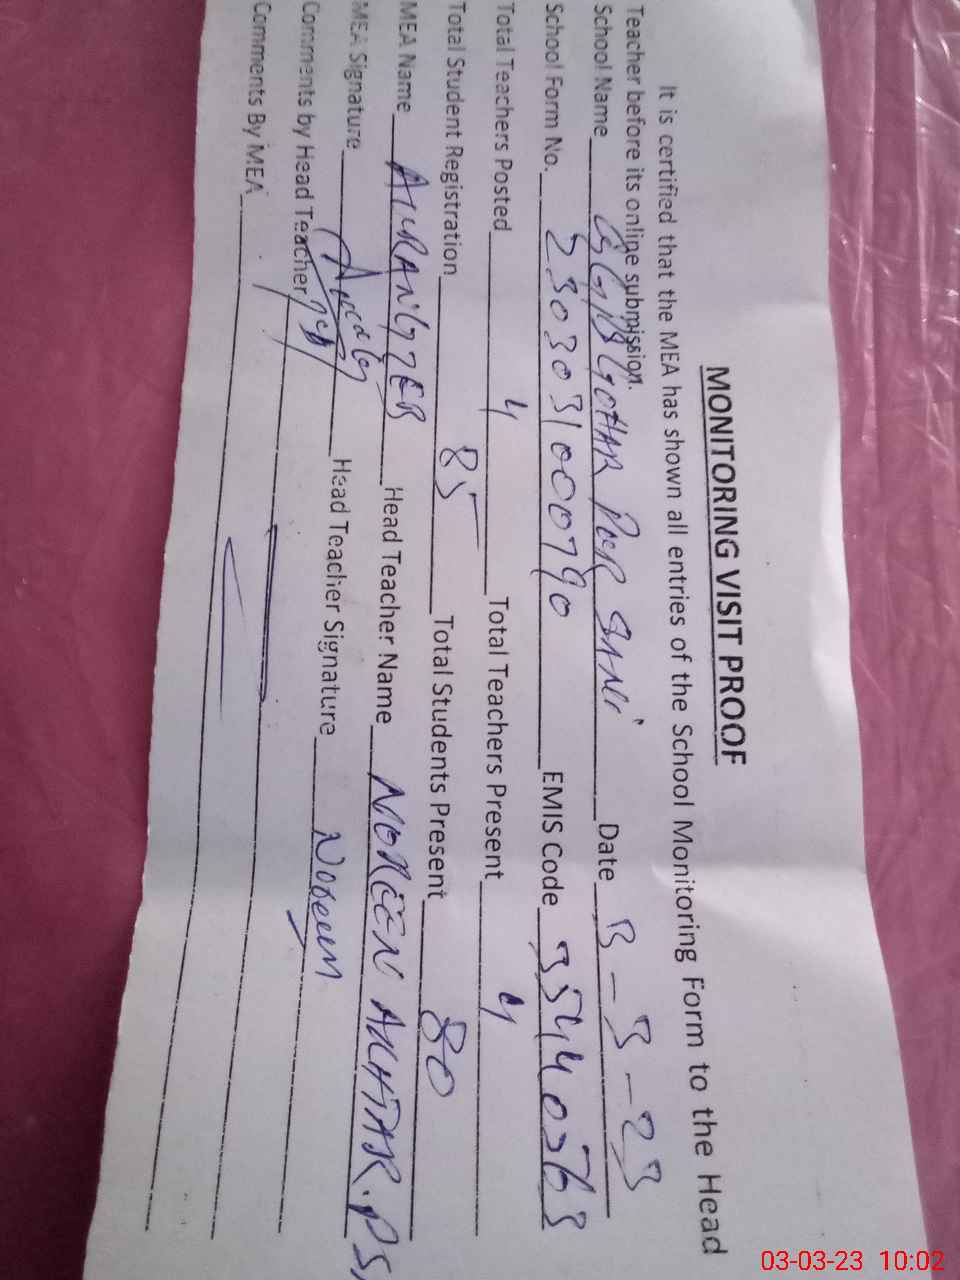 MONITORING VISIT PROOF
It is certified that the MEA has shown all entries of the School Monitoring Form to the Head
Teacher before its online submission.
School Name GOHAR PEER Date 3-3-23
School Form No. 2303031000790 EMIS Code 35440363
Total Teachers Posted 4 Total Teachers Present 4
Total Student Registration 85 Total Students Present 80
MEA Name AURANGZEB Head Teacher Name NOREEN AKHTAR.PST
MEA Signature Head Teacher Signature Noreen
Comments by Head Teacher
Comments By MEA
03-03-23 10:02